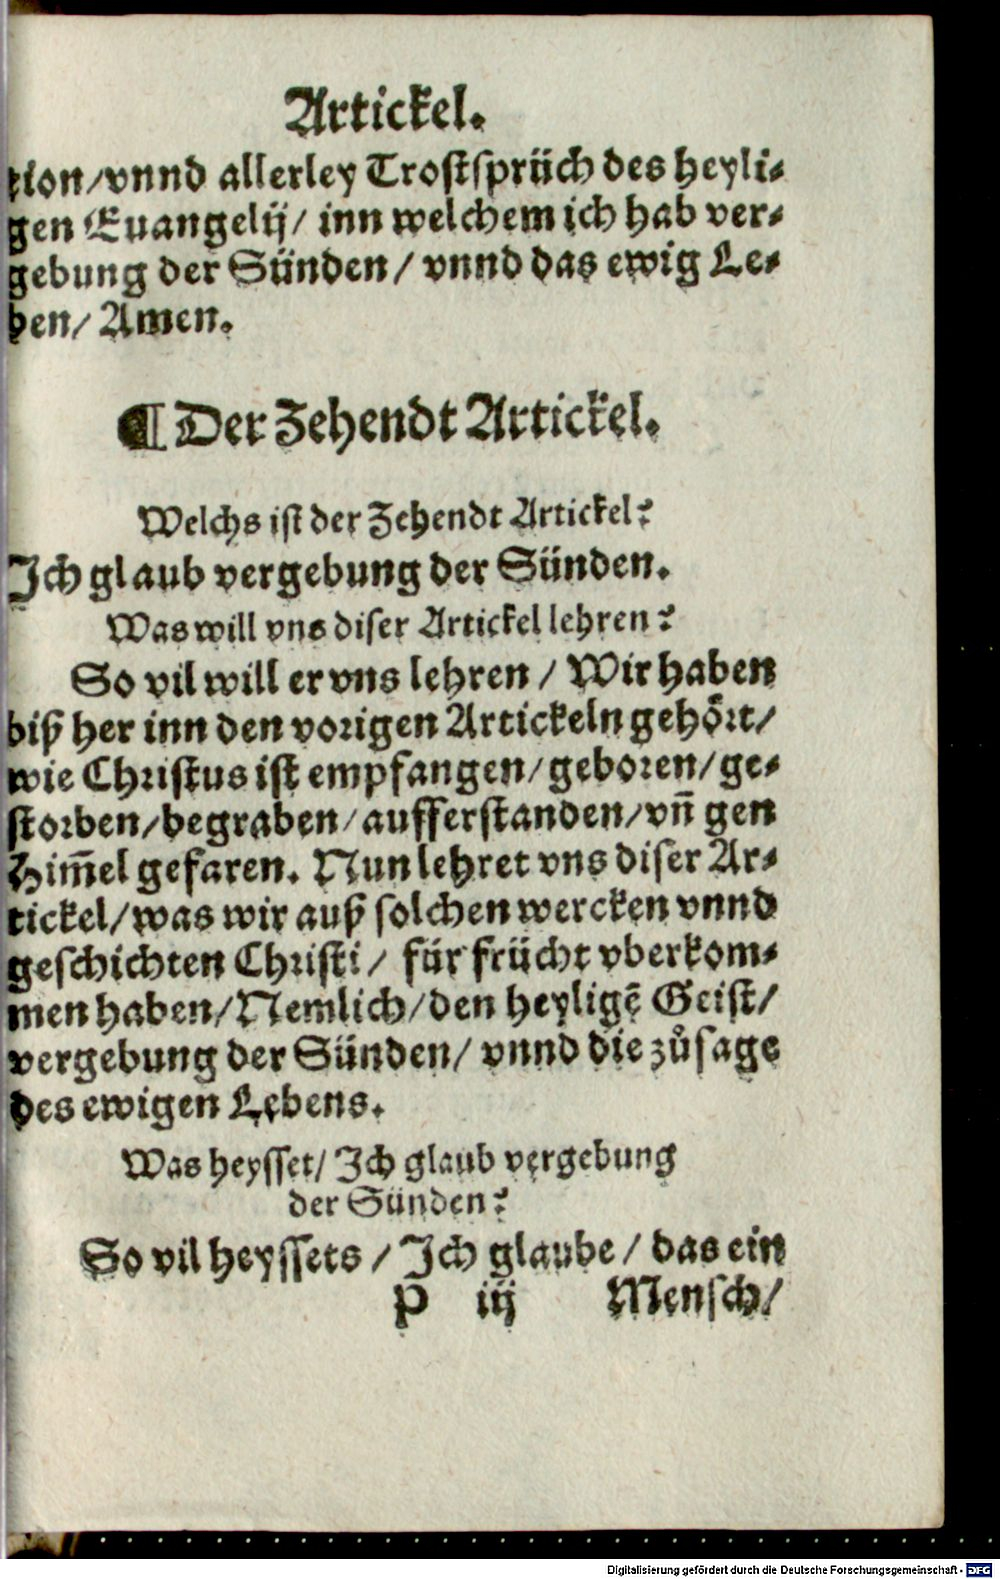 Artickel.
tion/vnnd allerley Trostsprüch des heyli-
gen Euangelij/ inn welchem ich hab ver-
gebung der Sünden/ vnnd das ewig Le-
ben/ Amen.
¶ Der Zehendt Artickel.
Welchs ist der Zehendt Artickel?
Ich glaub vergebung der Sünden.
Was will vns diser Artickel lehren?
So vil will er vns lehren / Wir haben
biß her inn den vorigen Artickeln gehört/
wie Christus ist empfangen/geboren/ge-
storben/begraben/aufferstanden/vñ gen
Him̃el gefaren. Nun lehret vns diser Ar-
tickel/was wir auß solchen wercken vnnd
geschichten Christi/ für frücht vberkom-
men haben/Nemlich/den heyligẽ Geist/
vergebung der Sünden/ vnnd die zůsage
des ewigen Lebens.
Was heysset/ Ich glaub vergebung
der Sünden?
So vil heyssets / Ich glaube/ das ein
P iij Mensch/
Digitalisierung gefördert durch die Deutsche Forschungsgemeinschaft - DFG